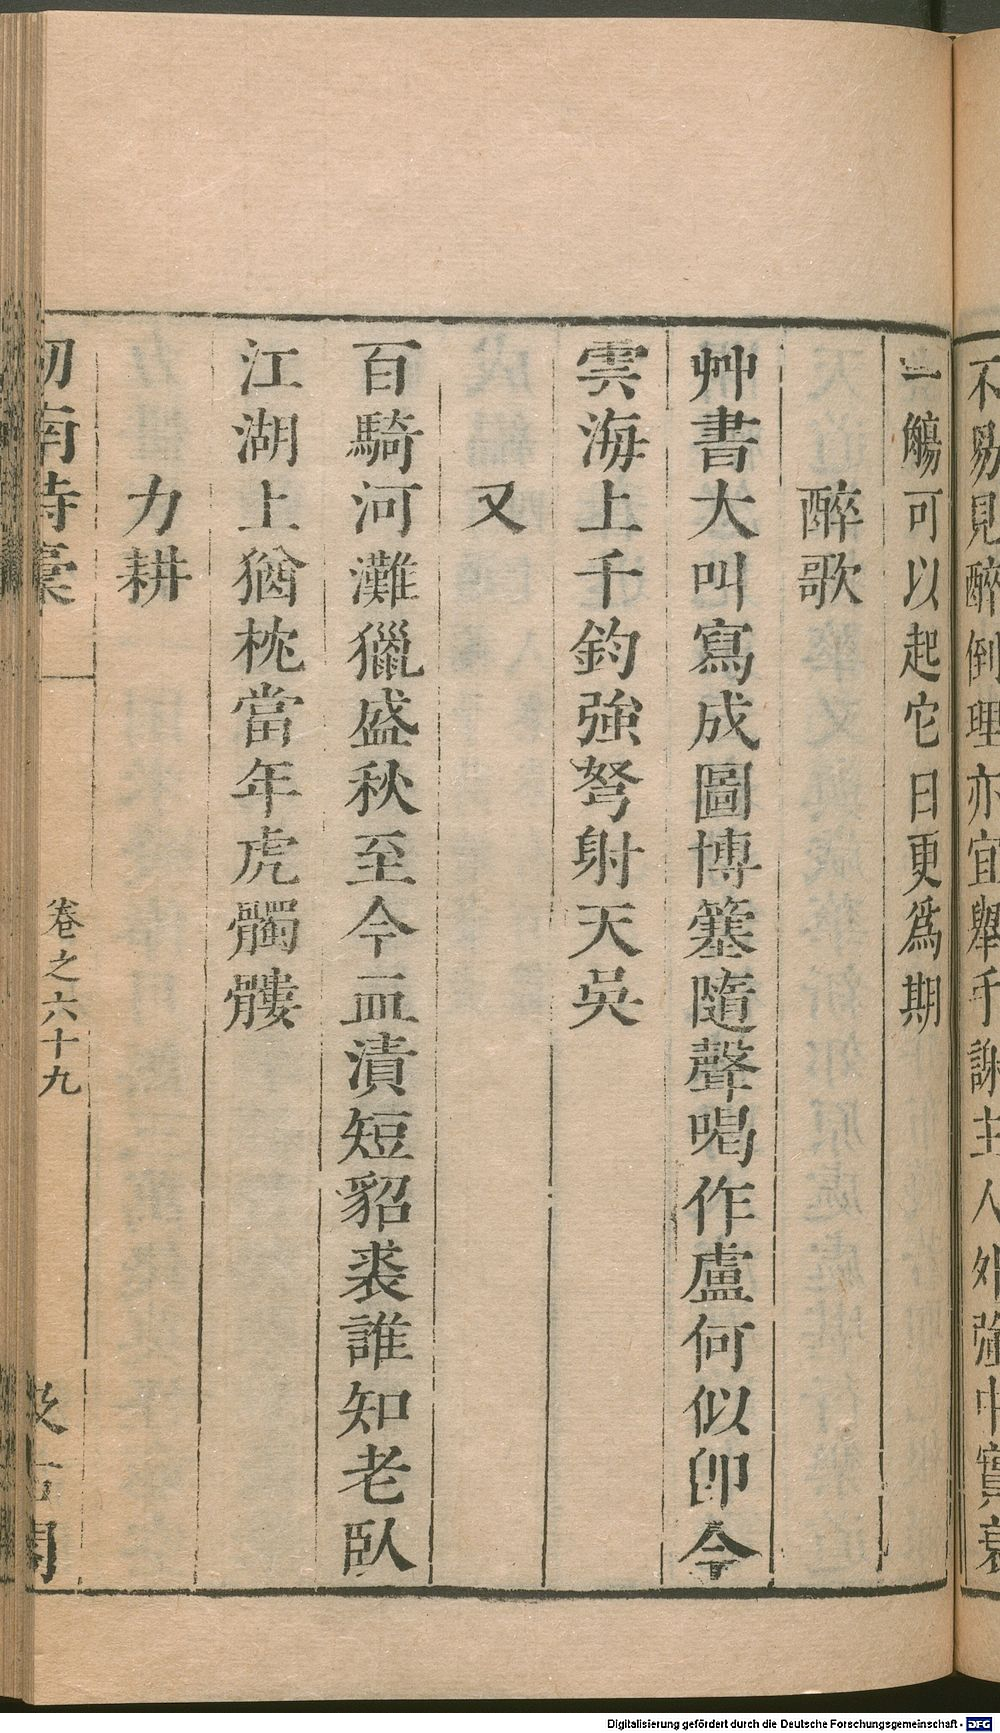 不易見醉倒理亦宜舉手謝主人外強中實衰
一觴可以起它日更爲期
醉歌
艸書大叫寫成圖博簺隨聲喝作盧何似卽今
雲海上千鈞強弩射天吳
又
百騎河灘獵盛秋至今血漬短貂裘誰知老臥
江湖上猶枕當年虎髑髏
力耕
劒南詩稾
卷之六十九
汲古閣
Digitalisierung gefördert durch die Deutsche Forschungsgemeinschaft - DFG